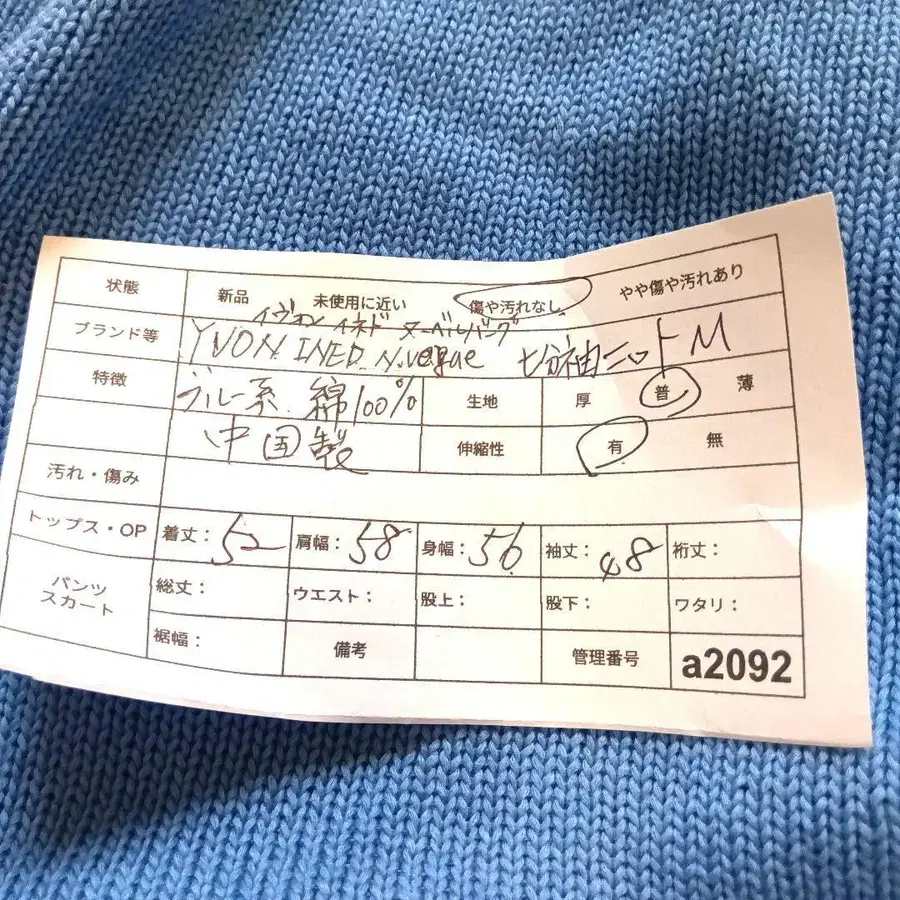 状態 新品 未使用に近い 傷や汚れなし やや傷や汚れあり
イヴォン イネド ヌーベルバーグ
ブランド等 YVON INED N.vague 七分袖ニット M
特徴 ブルー系 綿100% 生地 厚 普 薄
中国製 伸縮性 有 無
汚れ・傷み
トップス・OP 着丈: 52 肩幅: 58 身幅: 56 袖丈: 48 裄丈:
パンツ スカート 総丈: ウエスト: 股上: 股下: ワタリ:
裾幅: 備考 管理番号 a2092